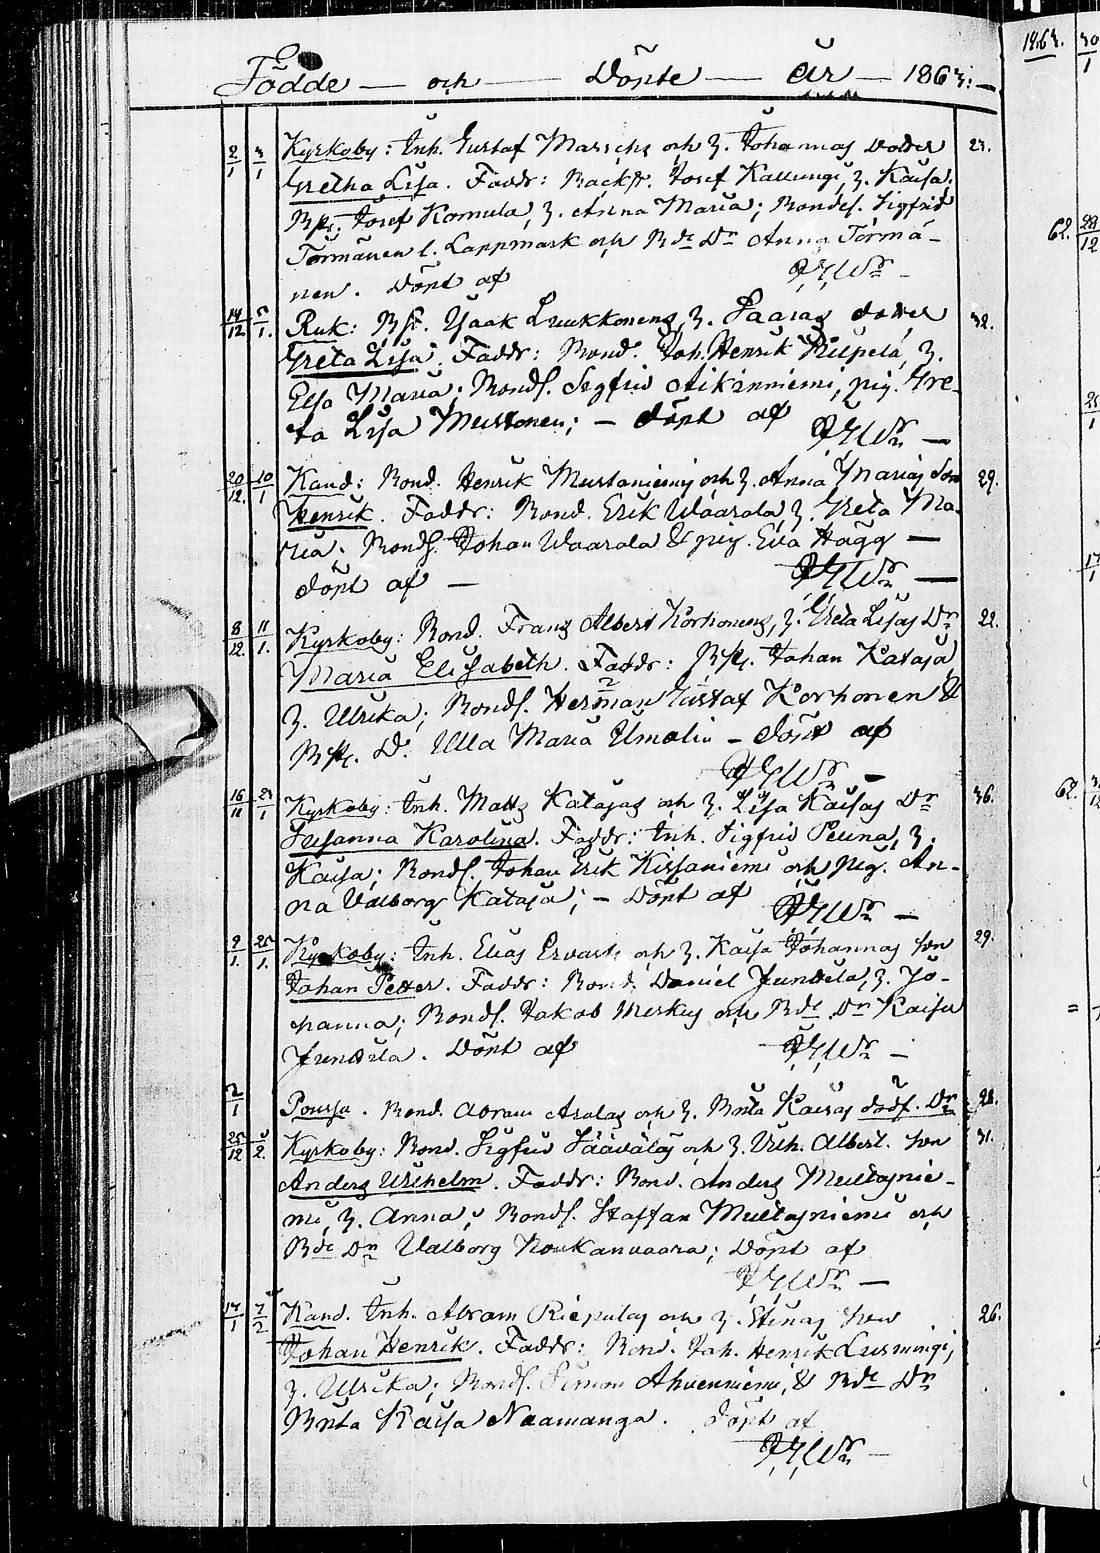 Födde — och — Döpte — År — 1863. —
2/1 3/1 Kyrkoby: Inh. Gustaf Marichs och h. Johannas Dotter 23.
Gretha Lisa. Faddr: Backst. Josef Kallungi, h. Kaisa;
Josef Komula, h. Anna Maria; Bondes. Sigfrid
Törmänen i Lappmark och Bde Dr Anna Törmä-
nen. Döpt af
14/12 5/1. Ruk: Isaak Luukkonens, h. Saaras dotter 32.
Greta Lisa. Faddr: Bond. Joh. Henrik Kilpelä, h.
Elsa Maria; Bonds. Segfrid Aikinniemi, pig. Gre-
ta Lisa Mustonen; — döpt af
20/12. 10/1 Kand: Bond. Henrik Mustaniemis och h. Anna Marias Son 29.
Henrik. Faddr: Bond. Erik Waarala, h. Greta Ma-
ria; Bonds. Johan Waarala & pig. Eva Hägg —
döpt af —
8/12. 11/1. Kyrkoby: Bond. Frans Albert Korhonens, h. Greta Lisas Dr 22.
Maria Elisabeth. Faddr: Johan Kataja
h. Ulrika; Bonds. Herman Gustaf Korhonen &
D. Ulla Maria — döpt af
16/11 23/1 Kyrkoby: Inh. Matts Katajas och h. Lisa Kaisas Dr 36.
Susanna Karolina. Faddr: Inh. Sigfrid Peuna, h.
Kaisa; Bonds. Johan Erik och pig. An-
na Valborg Kataja; — Döpt af
9/1. 25/1. Kyrkoby: Inh. Elias Ervasts och h. Kaisa Johannas son 29.
Johan Petter. Faddr: Bond. Daniel Juntila, h. Jo-
hanna; Bonds. Jakob och Bde Dr Kaisa
Juntila. Döpt af
2/1 Pousu. Bond. Abram Asalas och h. Brita Kaisas dödf. Dr 28.
25/12 5/2. Kyrkoby: Bond. Sigfrid Säävälas och h. Vilh. Albert. son 31.
Anders Wilhelm. Faddr: Bond. Anders Multasnie-
mi, h. Anna; Bonds. Staffan Multasniemi och
Bde Dr Valborg Koukanvaara; Döpt af
17/1 7/2 Kand. Inh. Abram Riepulas och h. Stinas son 26.
Johan Henrik. Faddr: Bon. Joh. Henrik Lusmingi,
h. Ulrika; Bonds. Simon Ahvenniemi, & Bde Dr
Brita Kaisa Naamanga. döpt af
1863. 30/1
62. 28/12
62.